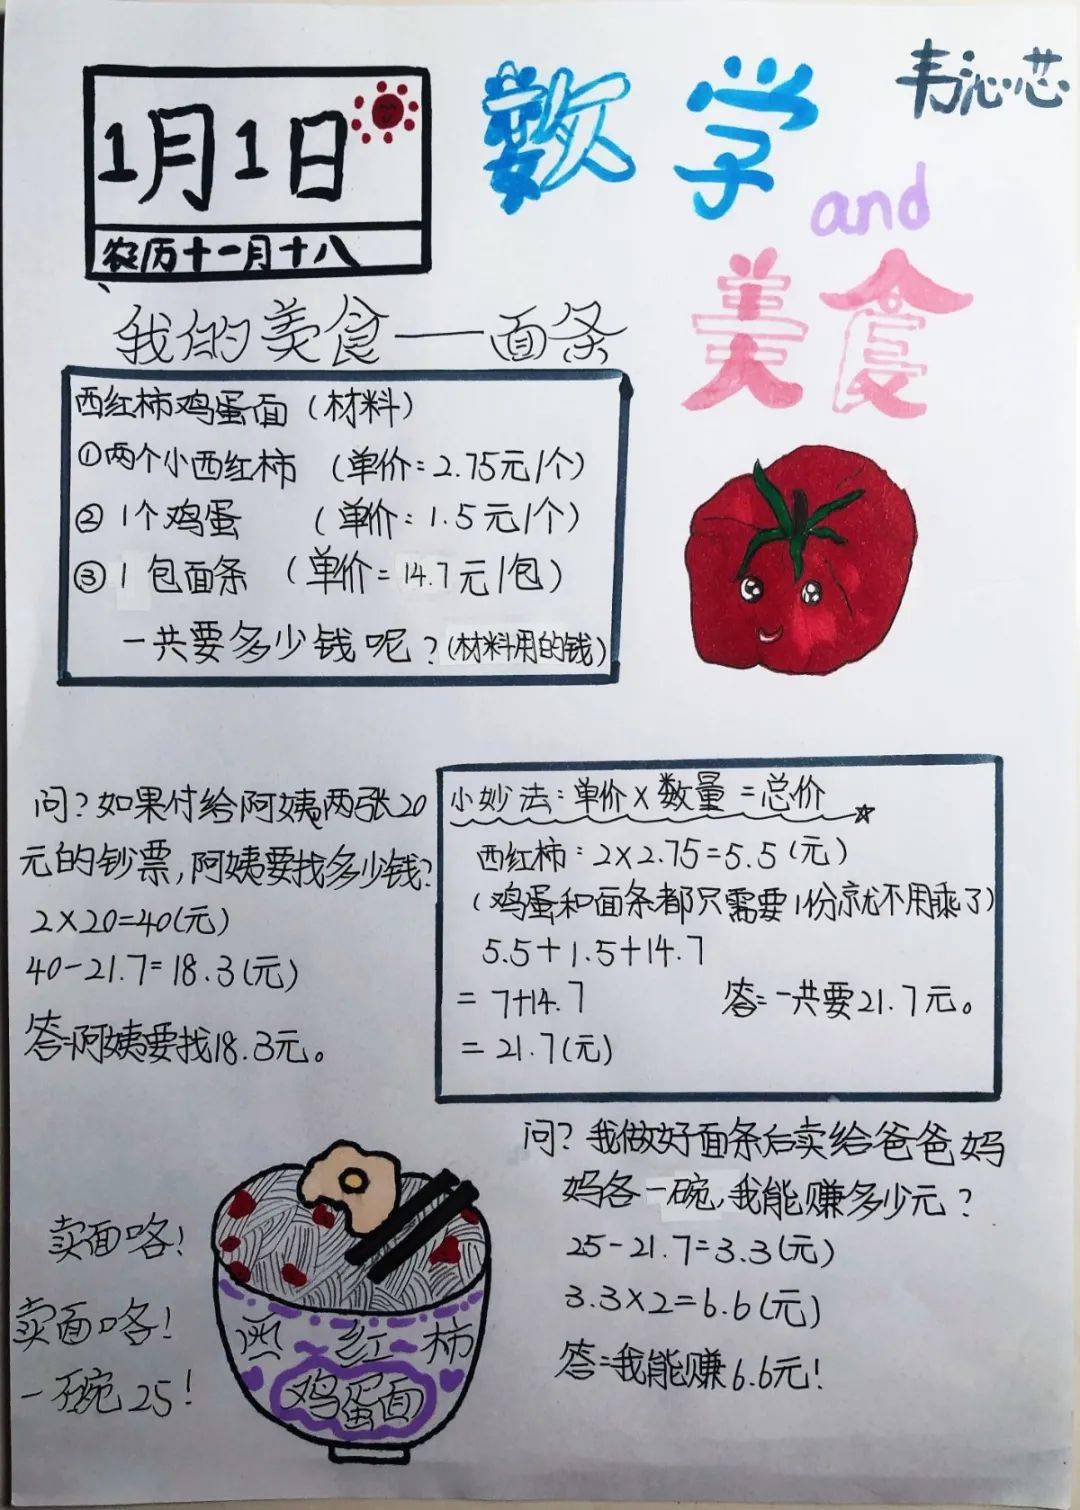 韦沁芯
1月1日
农历十一月十八
数学
and
美食
我的美食——面条
西红柿鸡蛋面（材料）
①两个小西红柿（单价：2.75元/个）
②1个鸡蛋（单价：1.5元/个）
③1包面条（单价=14.7元/包）
一共要多少钱呢？（材料用的钱）
小妙法：单价×数量=总价
西红柿：2×2.75=5.5（元）
（鸡蛋和面条都只需要1份就不用乘了）
5.5+1.5+14.7
=7+14.7
=21.7（元）
答：一共要21.7元。
问？如果付给阿姨两张20
元的钞票，阿姨要找多少钱？
2×20=40（元）
40-21.7=18.3（元）
答：阿姨要找18.3元。
问？我做好面条后卖给爸爸妈
妈各一碗，我能赚多少元？
25-21.7=3.3（元）
3.3×2=6.6（元）
答：我能赚6.6元！
卖面咯！
卖面咯！
一碗25！
西红柿
鸡蛋面